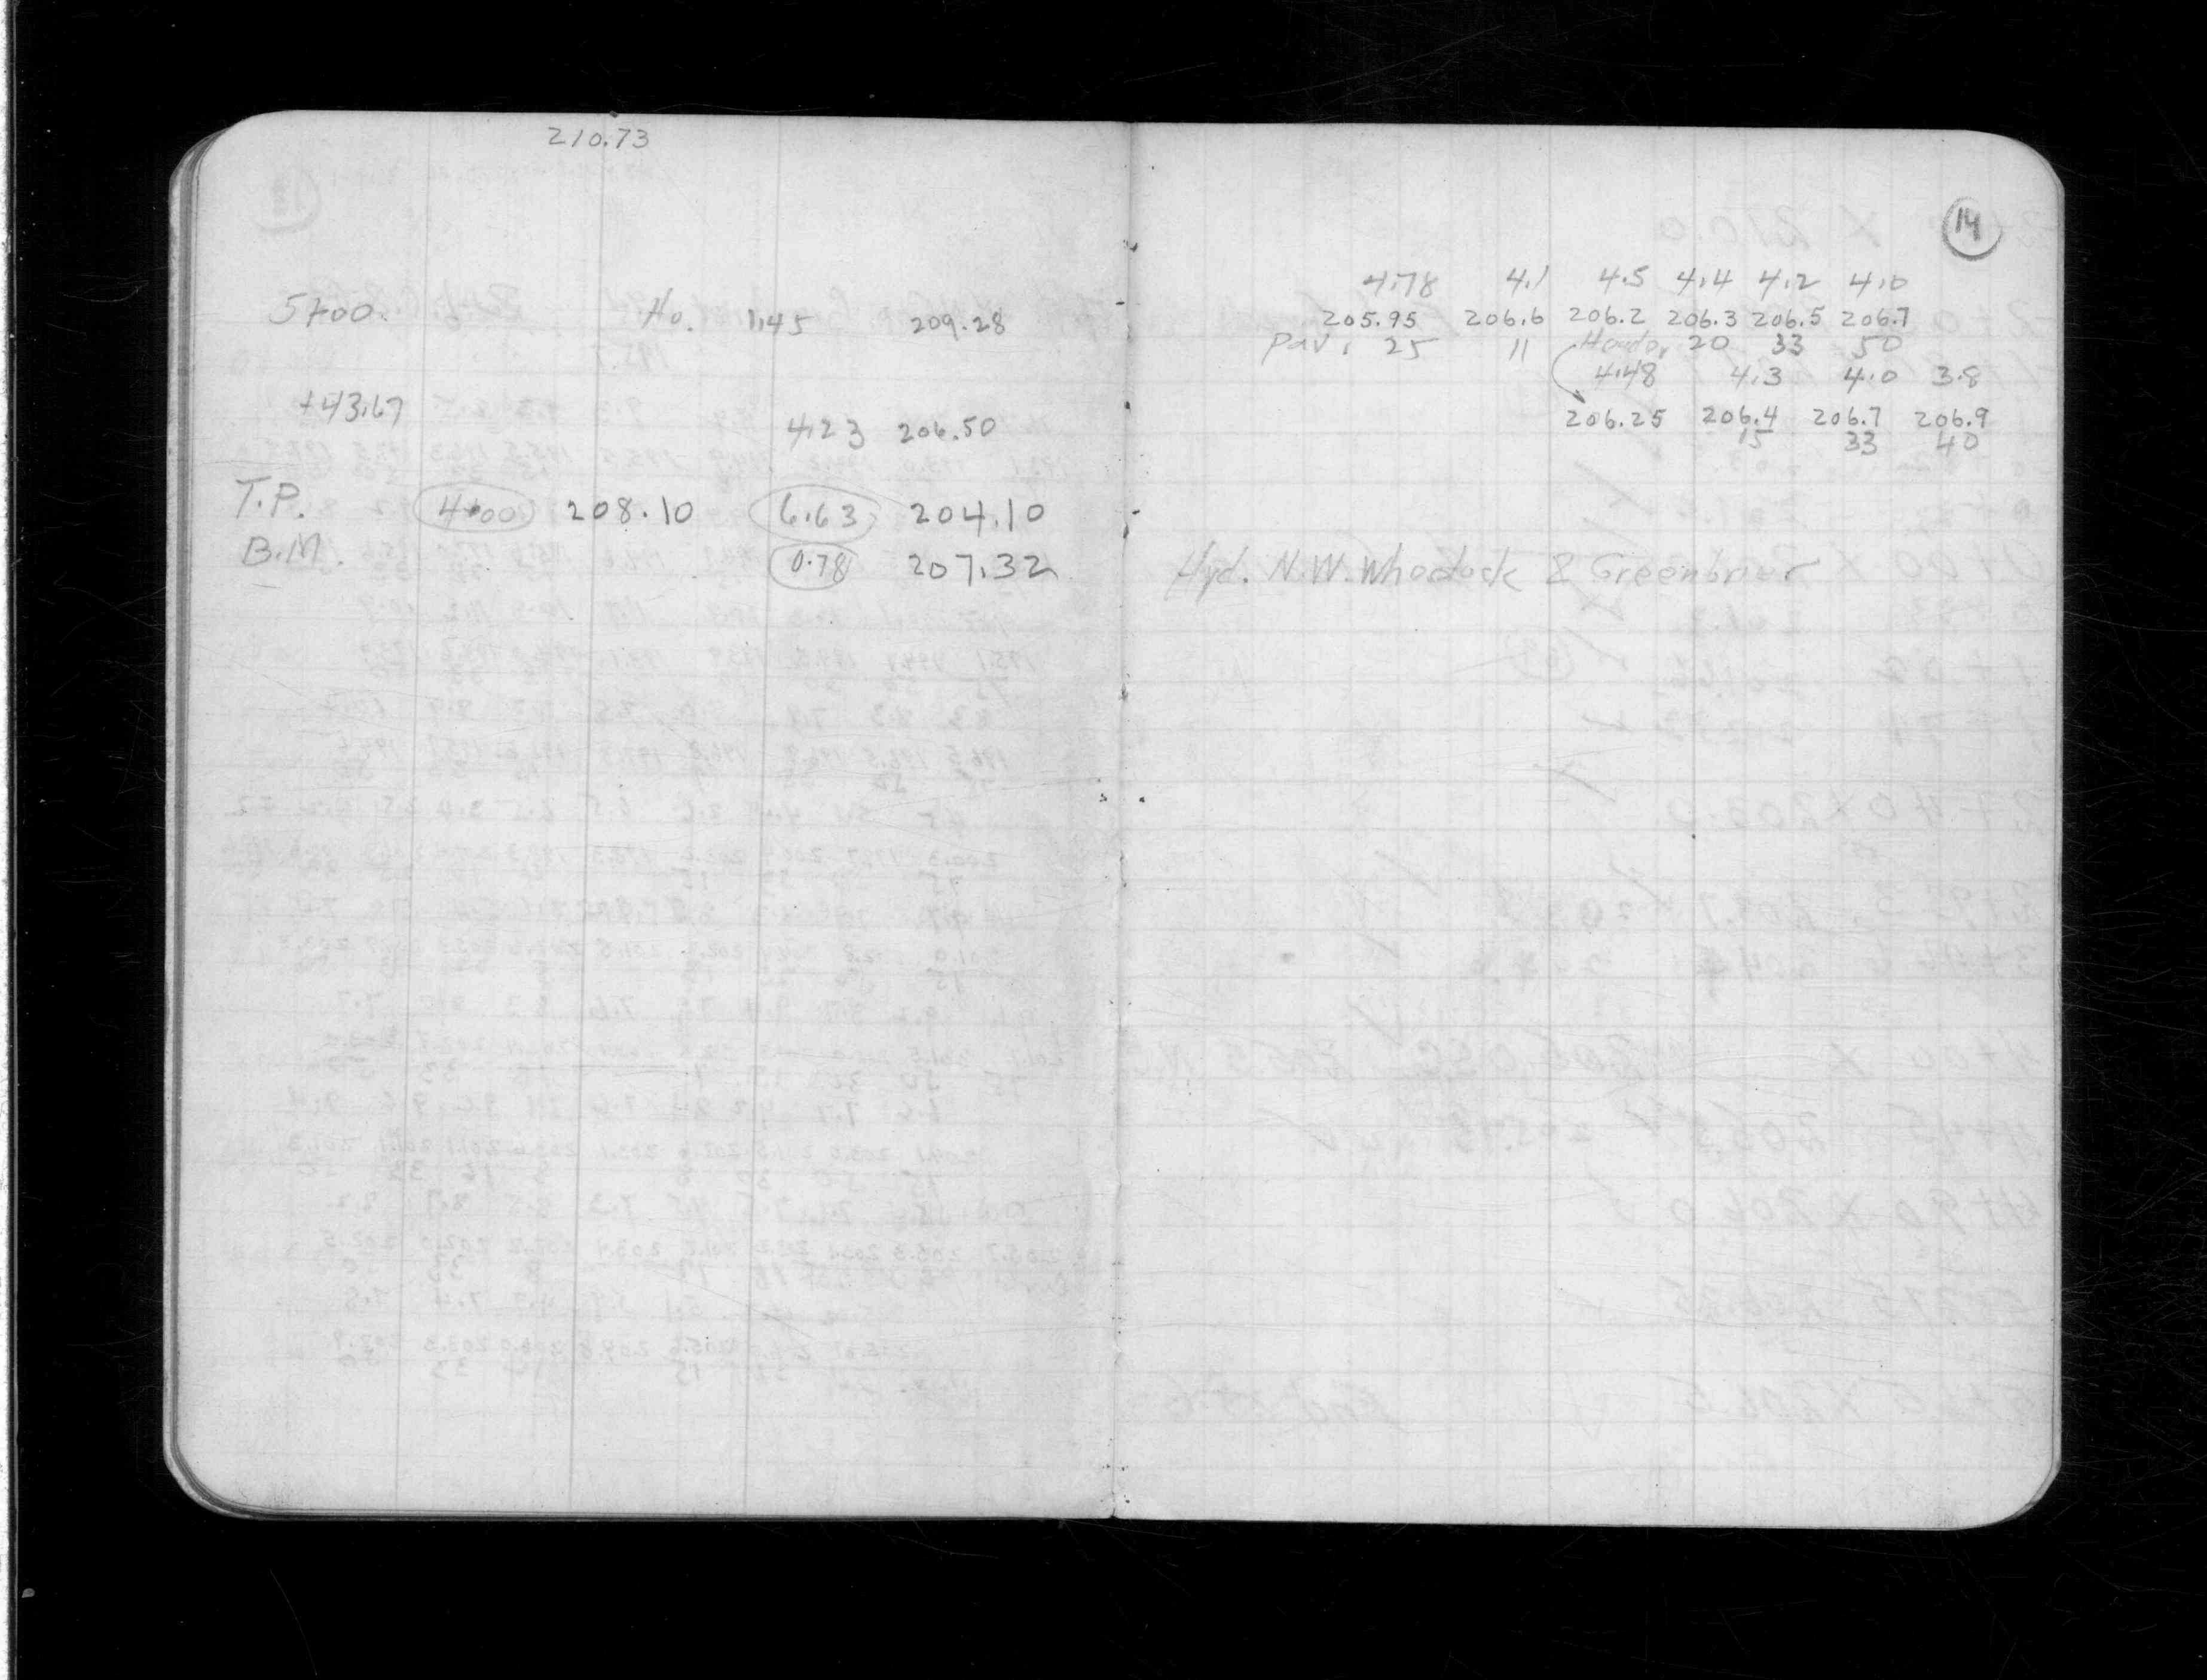 210.73
5+00. Ho. 1.45 209.28
+43.67
4.23 206.50
T.P. 4.00 208.10 6.63 204.10
B.M. 0.78 207.32
14
4.78 4.1 4.5 4.4 4.2 4.0
205.95 206.6 206.2 206.3 206.5 206.7
Pav. 25 11 20 33 50
4.48 4.3 4.0 3.8
206.25 206.4 206.7 206.9
15 33 40
Hyd. N.W. Whodock & Greenbrier